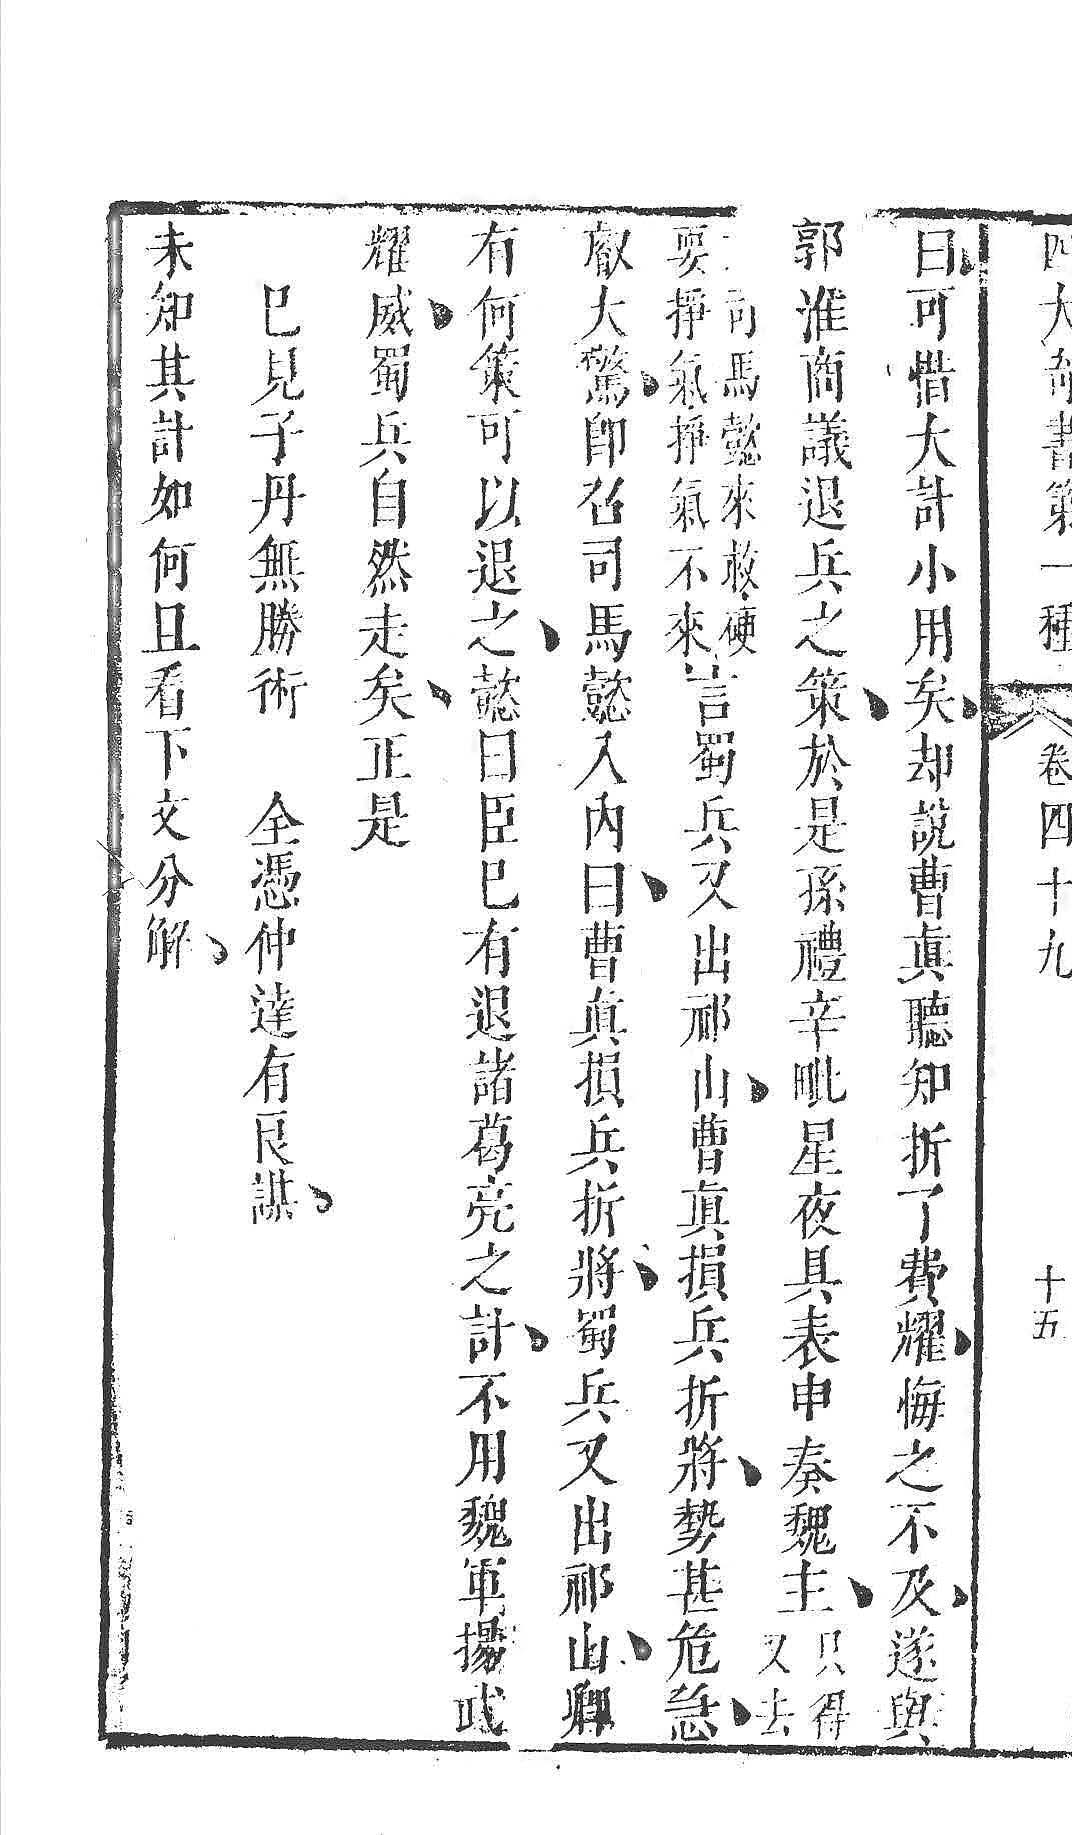 四大奇書第一種 卷四十九 十五
曰可惜大計小用矣却說曹眞聽知折了費耀悔之不及遂與
郭淮商議退兵之策於是孫禮辛毗星夜具表申奏魏主
只得
又去
司馬懿來救硬
要掙氣掙氣不來
言蜀兵又出祁山曹眞損兵折將勢甚危急
叡大驚卽召司馬懿入內曰曹眞損兵折將蜀兵又出祁山卿
有何策可以退之懿曰臣已有退諸葛亮之計不用魏軍揚武
耀威蜀兵自然走矣正是
已見子丹無勝術 全憑仲達有良謀
未知其計如何且看下文分解